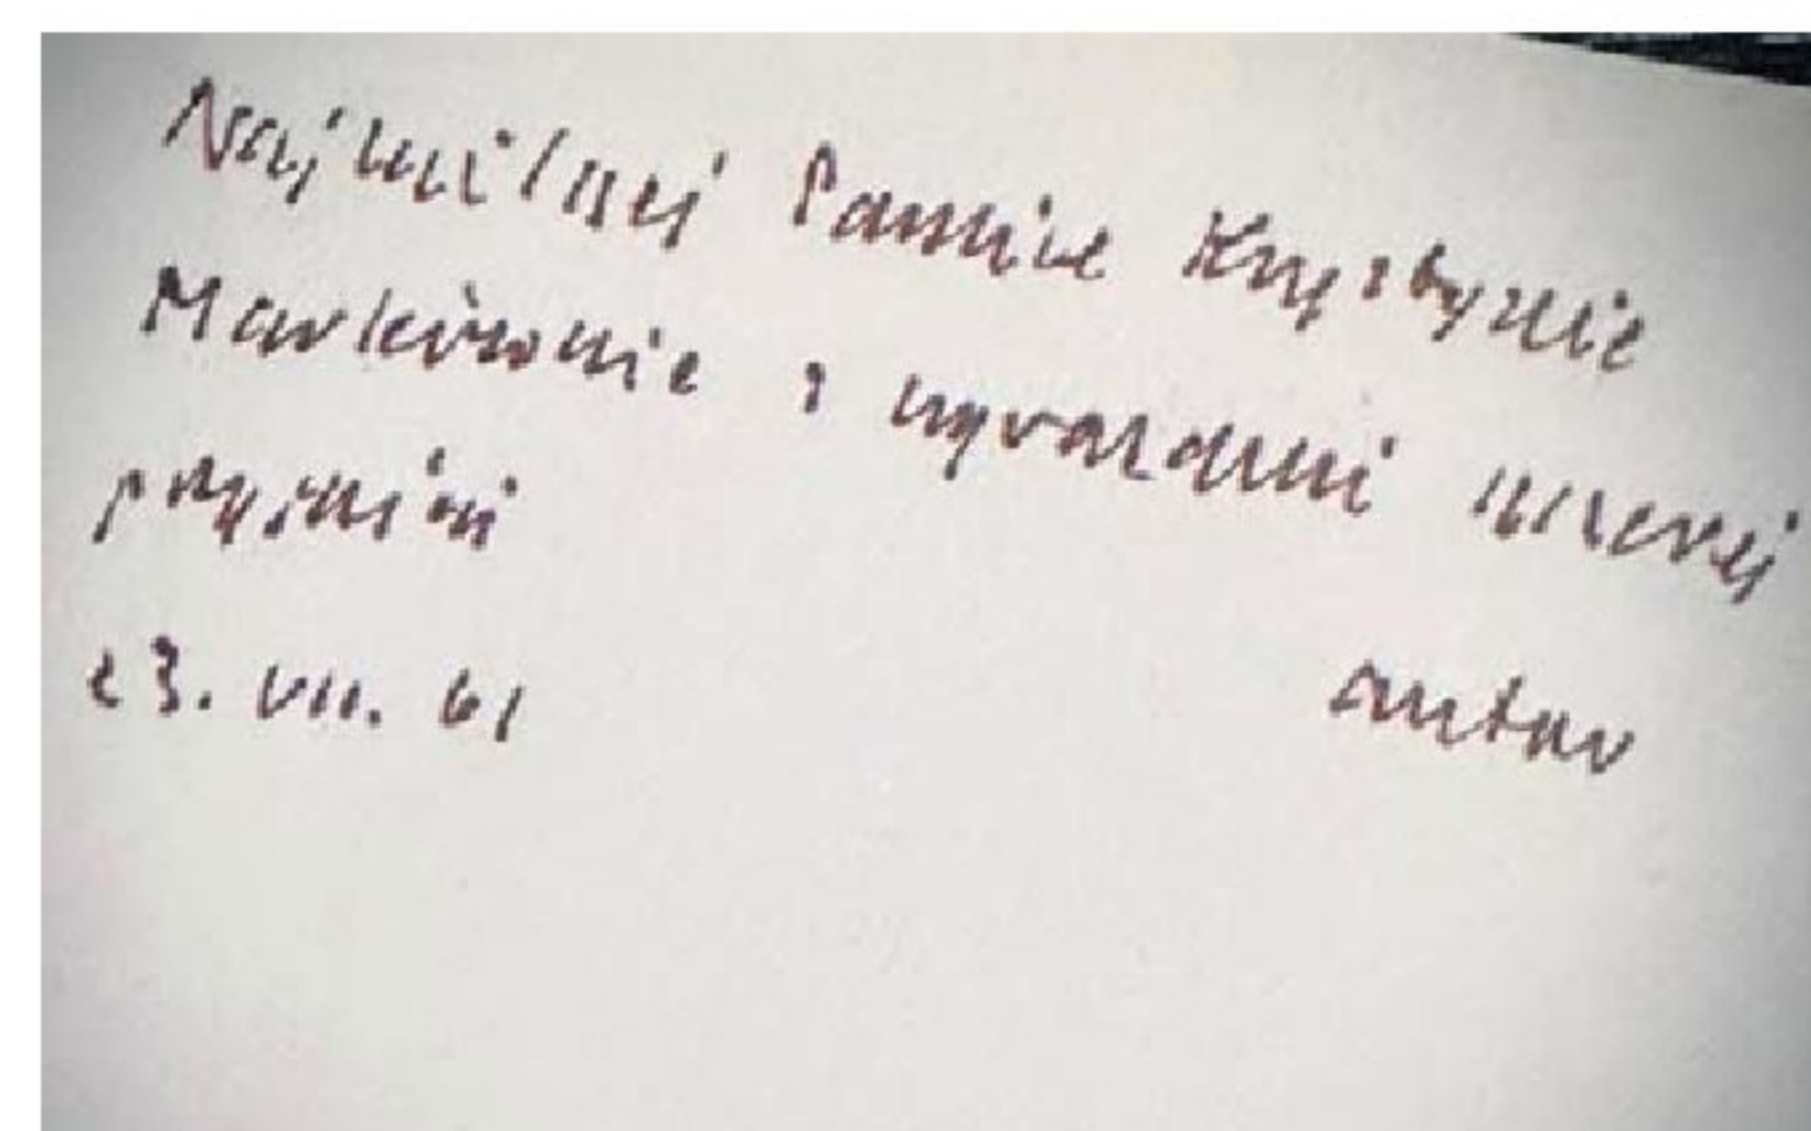 Najmilszej Pannie Krystynie
Markównie z wyrazami szczerej
przyjaźni
23. VII. 61
autor